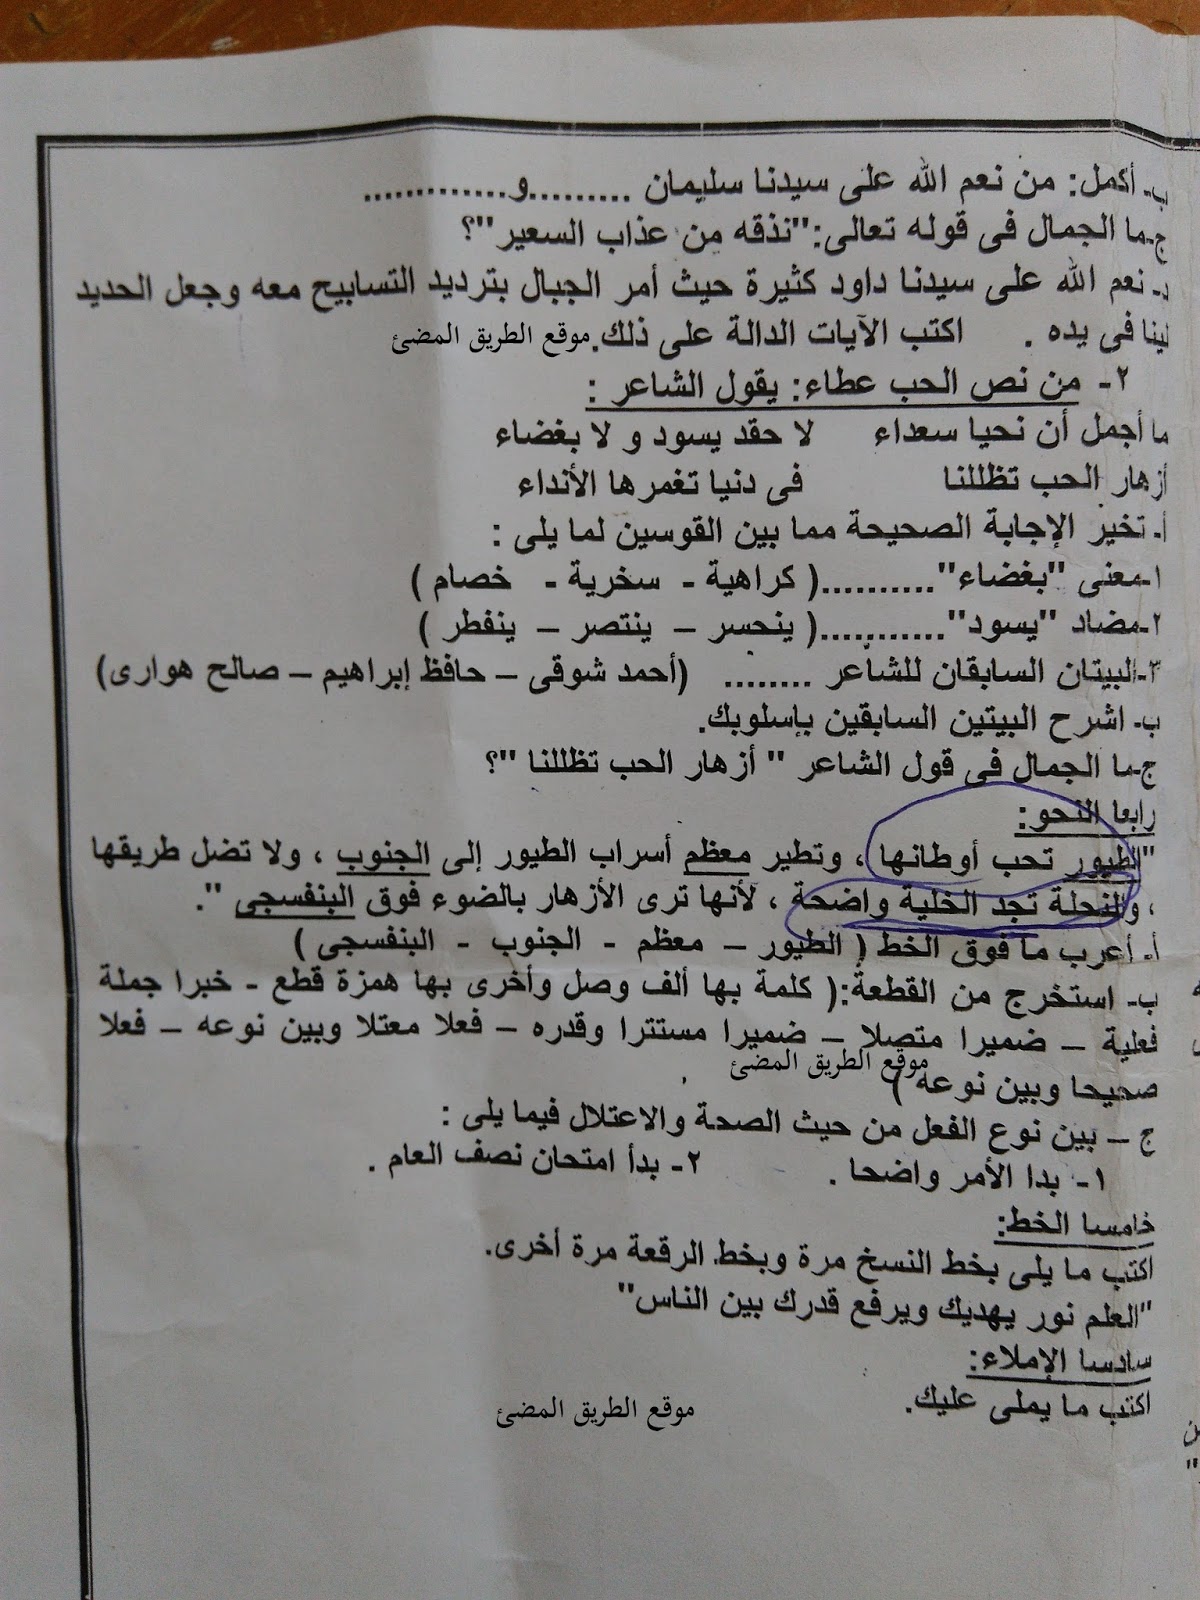 ب- أكمل: من نعم الله على سيدنا سليمان .........و.............
ج-ما الجمال فى قوله تعالى:"نذقه من عذاب السعير"؟
د- نعم الله على سيدنا داود كثيرة حيث أمر الجبال بترديد التسابيح معه وجعل الحديد
لينا فى يده . اكتب الآيات الدالة على ذلك. موقع الطريق المضئ
٢- من نص الحب عطاء: يقول الشاعر :
ما أجمل أن نحيا سعداء لا حقد يسود و لا بغضاء
أزهار الحب تظللنا فى دنيا تغمرها الأنداء
أ- تخير الإجابة الصحيحة مما بين القوسين لما يلى :
١-معنى "بغضاء"..........( كراهية - سخرية - خصام )
٢-مضاد "يسود"...........( ينحسر – ينتصر – ينفطر )
٣-البيتان السابقان للشاعر ........ (أحمد شوقى – حافظ إبراهيم – صالح هوارى)
ب- اشرح البيتين السابقين بإسلوبك.
ج-ما الجمال فى قول الشاعر " أزهار الحب تظللنا "؟
رابعا النحو:
"الطيور تحب أوطانها ، وتطير معظم أسراب الطيور إلى الجنوب ، ولا تضل طريقها
، والنحلة تجد الخلية واضحة ، لأنها ترى الأزهار بالضوء فوق البنفسجى ".
أ- أعرب ما فوق الخط ( الطيور – معظم - الجنوب - البنفسجى )
ب- استخرج من القطعة:( كلمة بها ألف وصل وأخرى بها همزة قطع - خبرا جملة
فعلية – ضميرا متصلا – ضميرا مستترا وقدره – فعلا معتلا وبين نوعه – فعلا
موقع الطريق المضئ
صحيحا وبين نوعه )
ج – بين نوع الفعل من حيث الصحة والاعتلال فيما يلى :
١- بدا الأمر واضحا . ٢- بدأ امتحان نصف العام .
خامسا الخط:
اكتب ما يلى بخط النسخ مرة وبخط الرقعة مرة أخرى.
"العلم نور يهديك ويرفع قدرك بين الناس"
سادسا الإملاء:
اكتب ما يملى عليك.
موقع الطريق المضئ